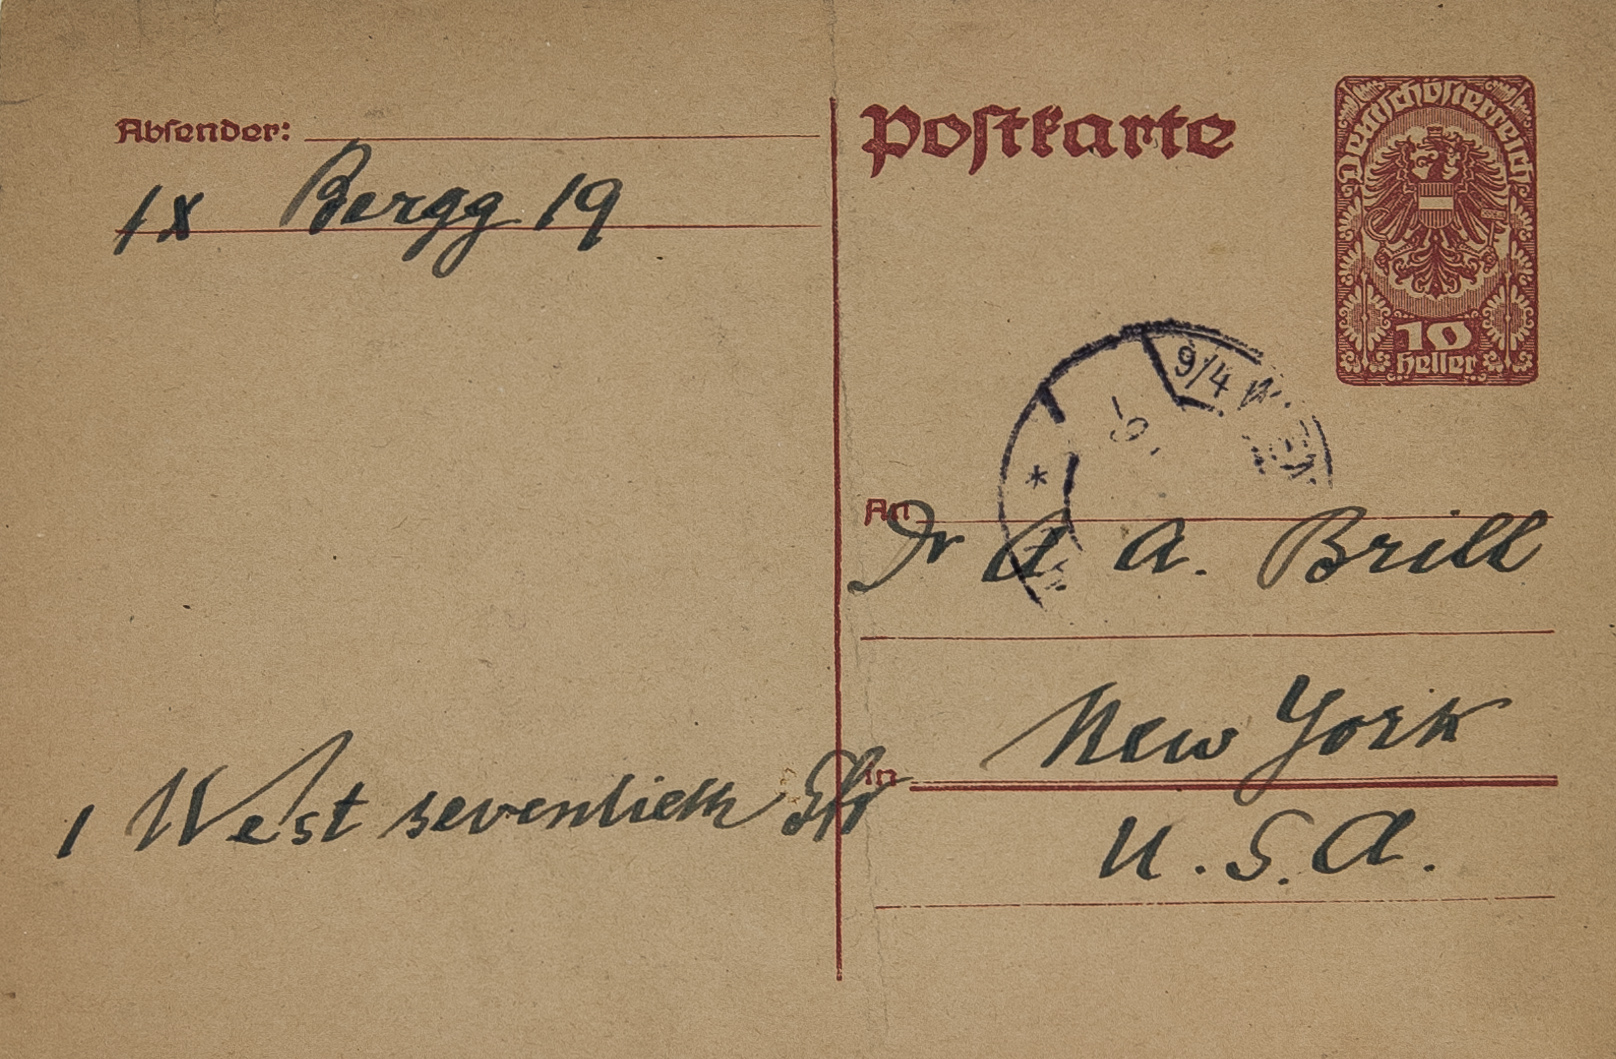 Absender:
IX Bergg 19
Postkarte
Deutschösterreich
10
Heller
9/4 WIEN
*
An
Dr A A. Brill
New York
1 West seventieth Str
in
U.S.A.